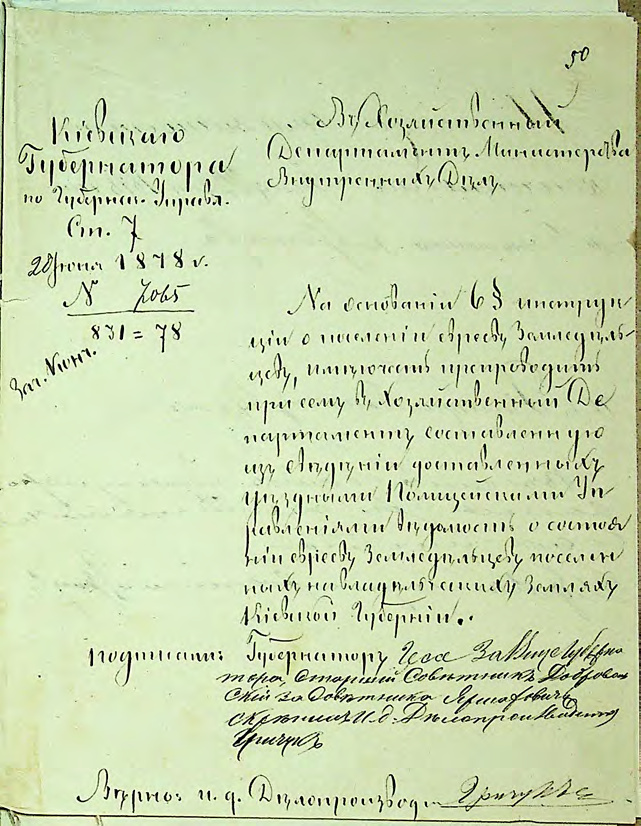 50
Кіевскаго
Губернатора
по Губернск. Управл.
Ст. 7
28 Іюня 1878 г.
N 7065
831 = 78
Въ Хозяйственный
Департаментъ Министерства
Внутреннихъ Дѣлъ
На основаніи 6 § инструк
ціи о поселеніи евреевъ Земледѣль-
цевъ, имѣю честь препроводить
при семъ въ Хозяйственный Де
партаментъ составленную
изъ свѣдѣній доставленныхъ
уѣздными Полицейскими Уп
равленіями вѣдомость о состоя
ніи евреевъ Земледѣльцевъ поселен
ныхъ на владѣльческихъ Земляхъ
Кіевской Губерніи.
подписали: Губернаторъ Гессе За Вице Губерна
тора, Старшій Совѣтникъ Добровол
скій за Совѣтника
скрѣпилъ И. д. Дѣлопроизводителя
Гричукъ
Вѣрно: и. д. Дѣлопроизвод. Гричукъ